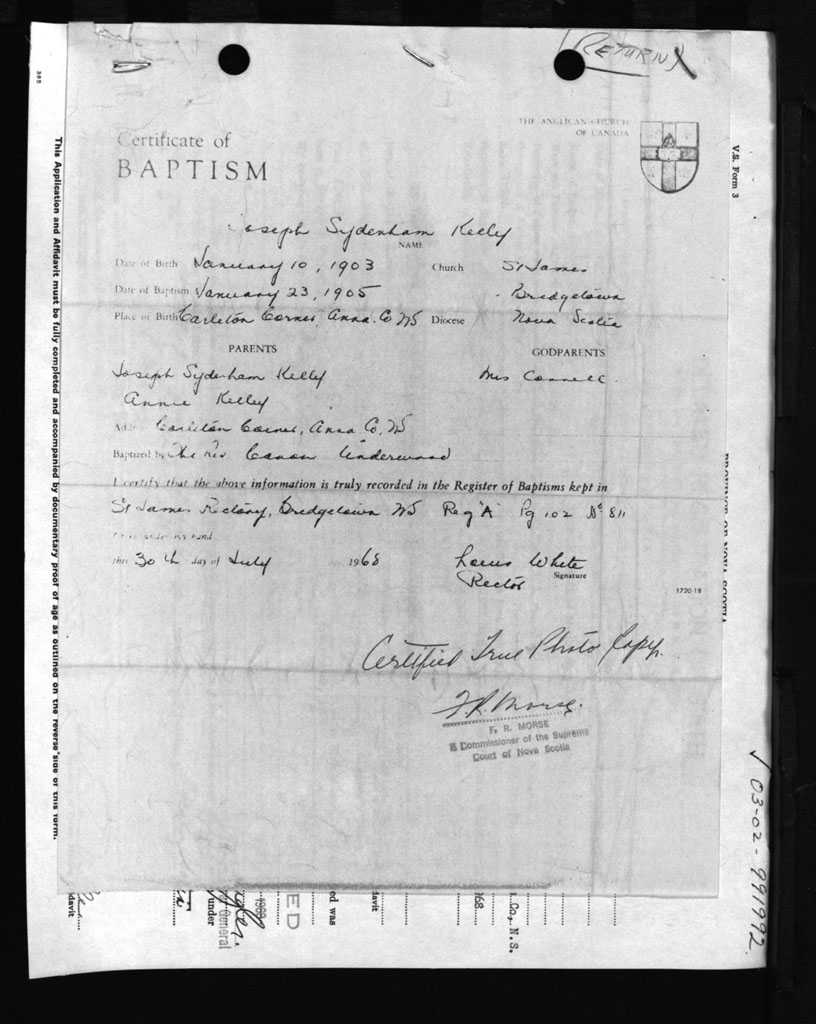 RETURN
THE ANGLICAN CHURCH
OF CANADA
Certificate of
BAPTISM
Joseph Sydenham Kelly
NAME
Date of Birth January 10, 1903 Church St James
Date of Baptism January 23, 1905 Bridgetown
Place of Birth Carleton Corner, Anna. Co NS Diocese Nova Scotia
PARENTS GODPARENTS
Joseph Sydenham Kelly Mrs Connell
Annie Kelley
Carleton Corner, Anna Co, NS
Baptized by The Rev. Canon Underwood
I certify that the above information is truly recorded in the Register of Baptisms kept in
St James Rectory, Bridgetown NS Reg "A" Pg 102 No 811
hand
this 30th day of July 1968 White
Signature
Rector
1720-18
Certified True Photo Copy.
F. R. Morse.
F. R. MORSE
A Commissioner of the Supreme
Court of Nova Scotia
385
This Application and Affidavit must be fully completed and accompanied by documentary proof of age as outlined on the reverse side of this form.
V.S. Form 3
PROVINCE OF NOVA SCOTIA
03-02-991992
davit
under
General
1968
ED
ed was
davit
968
Co., N.S.